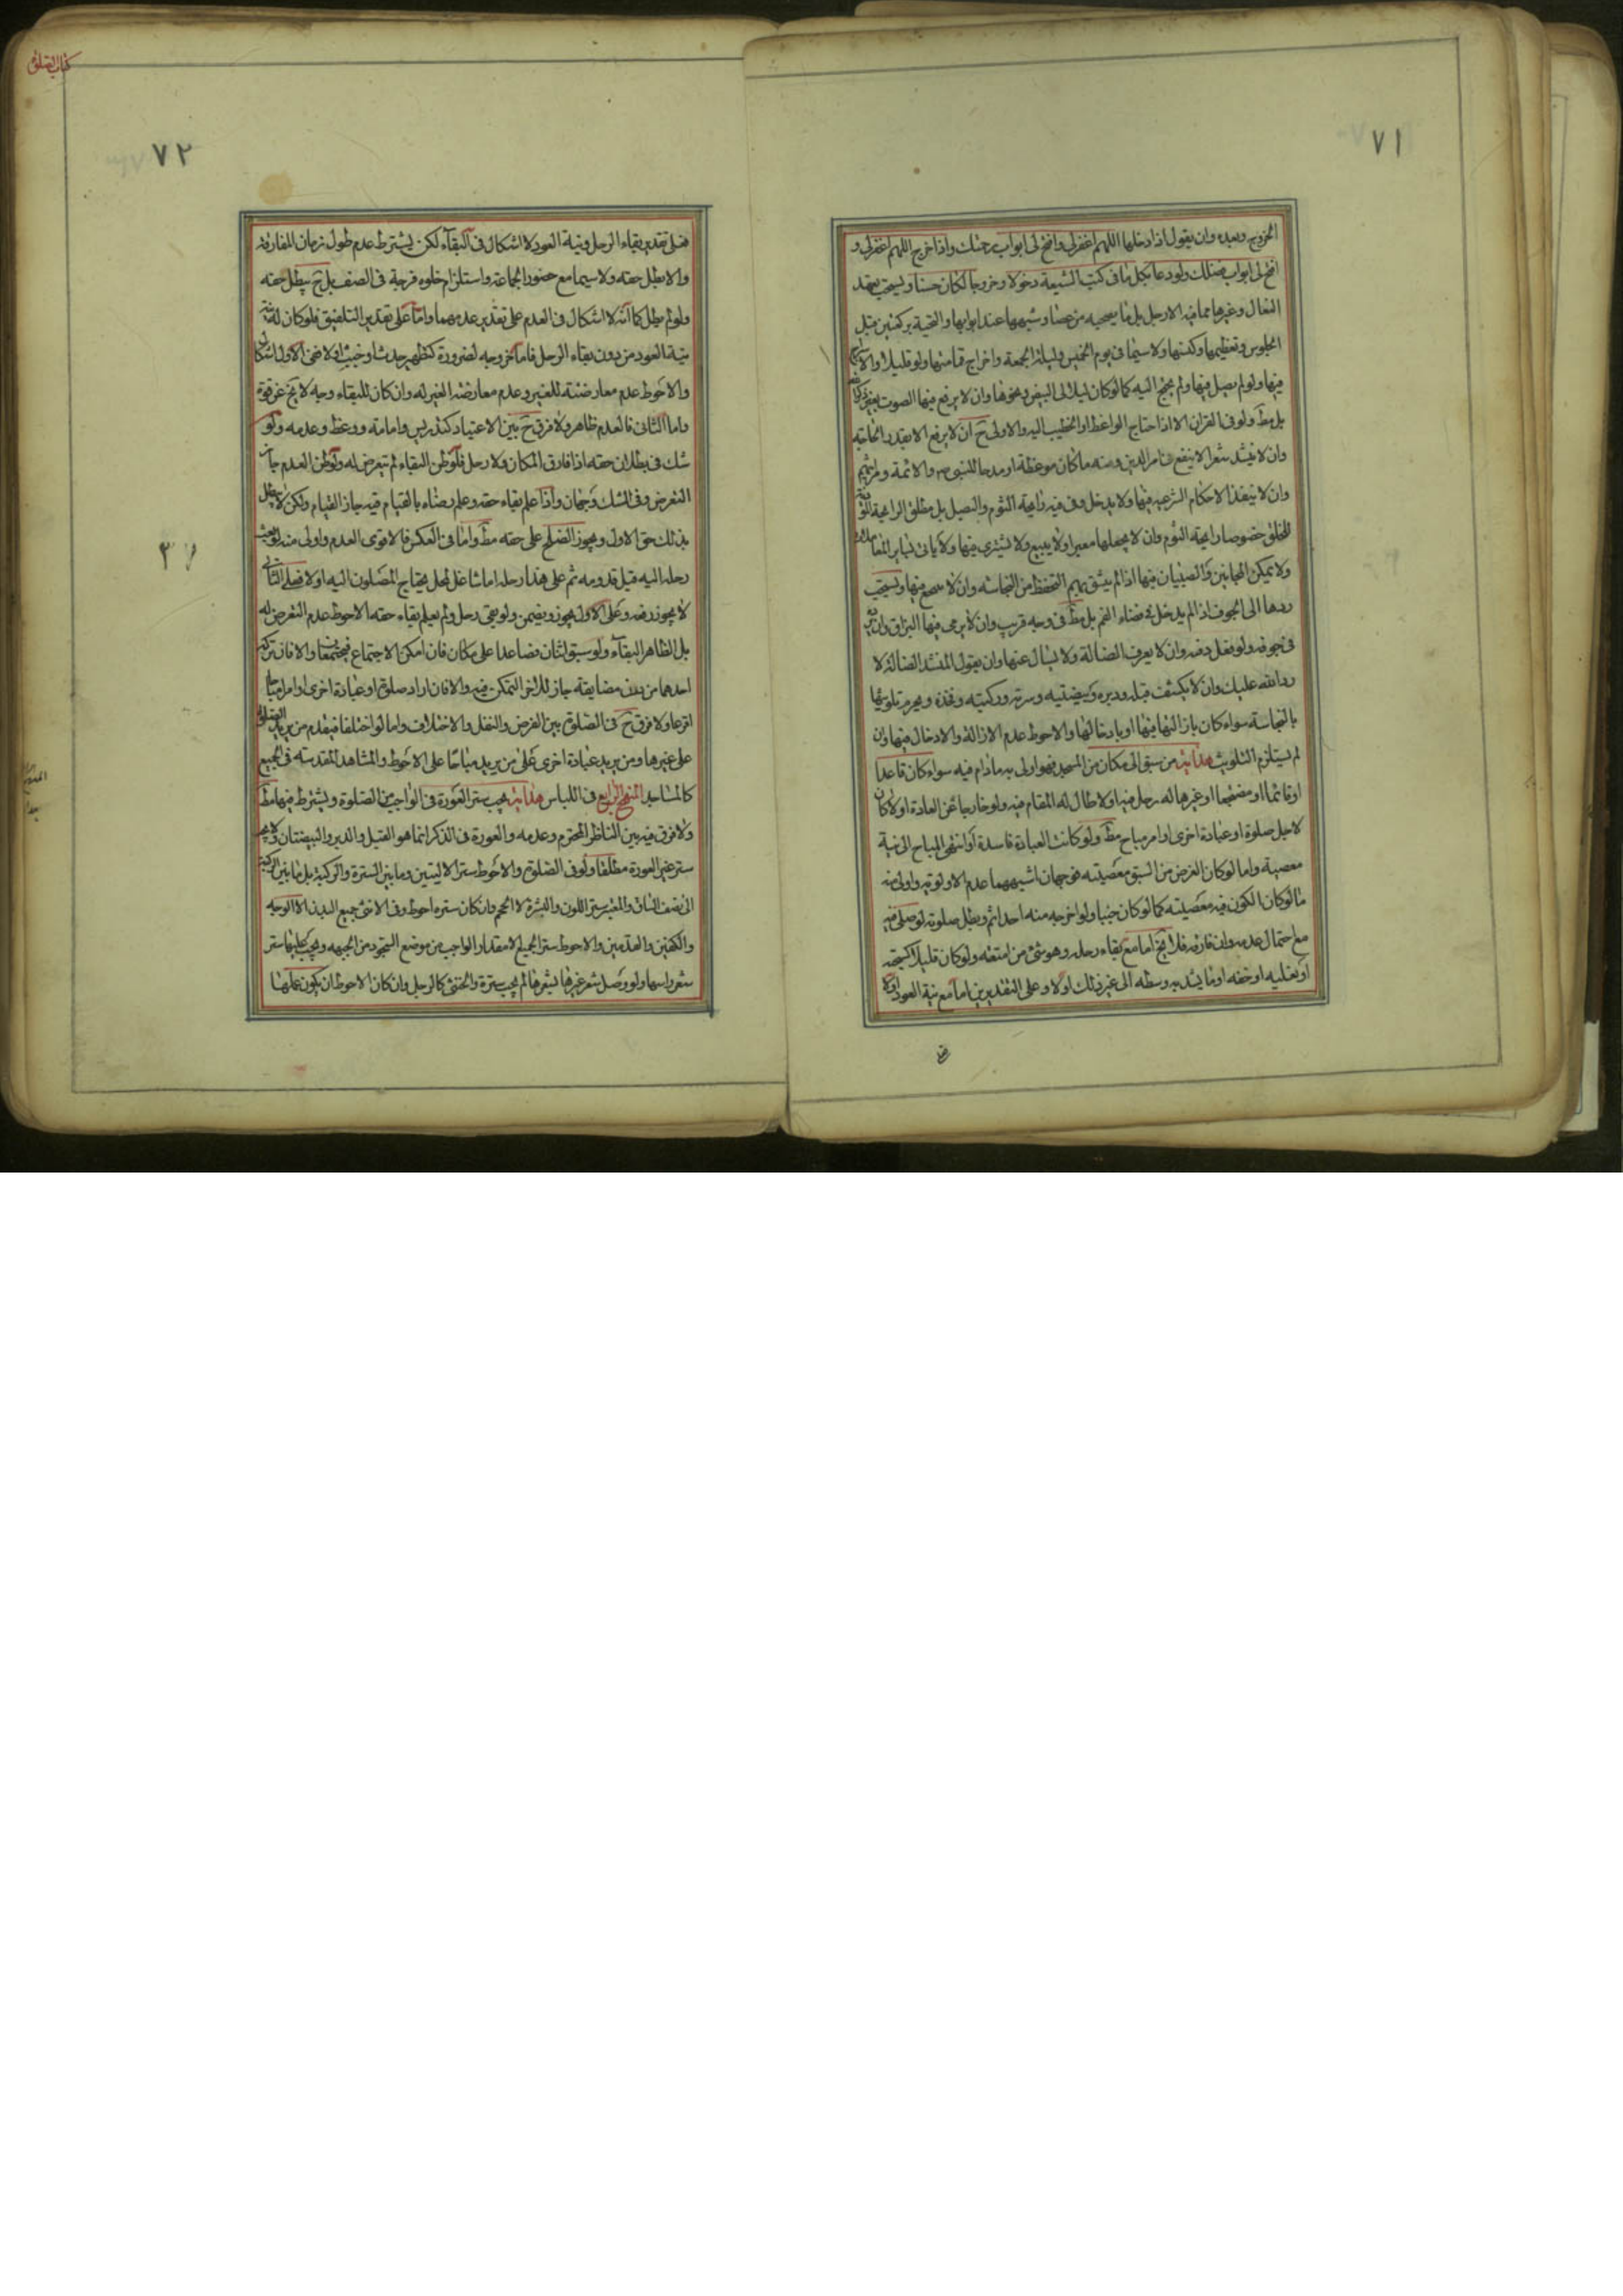 ٧١
الخروج وبعده وان يقول اذا دخلها اللهم اغفر لى وافتح لى ابواب رحمتك واذا خرج اللهم اغفر لى و
افتح لى ابواب فضلك ولو دعا بكل ما فى كتب الشيعة دخولا وخروجا لكان حسنا ويستحب تعهد
النعال وغيرها مما فى الارجل بل ما يصحبه من عصا وشبهها عند ابوابها والتحية بركعتين قبل
الجلوس وتعظيمها وكنسها ولا سيما فى يوم الخميس وليلة الجمعة واخراج قمامتها ولو قليلا
فيها ولو لم يصل فيها ولم يحتج اليه كما لو كان ليلا الى البيض ونحوها وان لا يرفع فيها الصوت
بل مط ولو فى القران الا اذا احتاج الواعظ او الخطيب اليه والاولى ح ان لا يرفع الا بقدر الحاجة
وان لا ينشد شعرا لا ينفع فى امر الدين ومنه ما كان موعظة او مدحا للنبى ص والائمة و
وان لا ينفذ الاحكام الشرعية فيها ولا يدخل وفى فيه رايحة الثوم والبصل بل مطلق الرايحة
للخلق خصوصا رايحة الثوم وان لا يجعلها معبرا ولا يبيع ولا يشترى فيها ولا
ولا يمكن المجانين والصبيان فيها اذا لم يثق بهم التحفظ من النجاسة وان لا فيها ويستحب
ردها الى الجوف اذا لم يدخل فى فضاء الفم بل مط فى وجه قريب وان لا يرمى فيها البزاق وان
فى جوفه ولو فعل دفنه وان لا يعرف الضالة ولا يسأل عنها وان يقول لمنشد الضالة لا
رد الله عليك وان لا يكشف قبله ودبره وبيضتيه وسرته وركبتيه وفخذه ويحرم تلويثها
بالنجاسة سواء كان بازالتها فيها او بادخالها والاحوط عدم الازالة والادخال فيها وان
لم يستلزم التلويث هداية من سبق الى مكان من المسجد فهو اولى به ما دام فيه سواء كان قاعدا
او قائما او مضطجعا او غيرها له رحل فيه او لا طال له المقام فيه ولو خارجا عن العادة او لا كان
لاجل صلوة او عبادة اخرى او امر مباح مط ولو كانت العبادة فاسدة او انتهى المباح الى نية
معصية واما لو كان الغرض من السبق معصيته فوجهان اشبههما عدم الاولوية واولى منه
ما لو كان الكون فيه معصيته كما لو كان جنبا ولو اخرجه منه احد اثم وبطل صلوته لو صلى فيه
مع احتمال عدمه وان فارقه فلا يخ اما مع بقاء رحله وهو شئ من امتعته ولو كان قليلا كسبحته
او نعليه او خفه او ما يشد به وسطه الى غير ذلك او لا وعلى التقديرين اما مع نية العود او لا
كتاب الصلوة
٧٢
فعلى تقدير بقاء الرحل ونية العود لا اشكال فى البقاء لكن يشترط عدم طول زمان المفارقة
والا بطل حقه ولا سيما مع حضور الجماعة واستلزام خلوه فرجة فى الصف بل ح يبطل حقه
ولو لم يطل كما انه لا اشكال فى العدم على تقدير عدمهما واما على تقدير التلفيق فلو كان له
نية العود من دون بقاء الرحل فاما خروجه لضرورة كتطهير حدث او خبث او لا ففى الاول اشكال
والاحوط عدم معارضته للغير وعدم معارضة الغير له وان كان للبقاء وجه لا يخ عن قوة
واما الثانى فالعدم ظاهر ولا فرق ح بين الاعتياد كتدريس وامامة ووعظ وعدمه ولو
شك فى بطلان حقه اذا فارق المكان ولا رحل فلو ظن البقاء لم يتعرض له ولو ظن العدم جاز
التعرض وفى الشك وجهان واذا علم بقاء حقه وعلم رضاه بالقيام فيه جاز القيام ولكن لا يبطل
بذلك حق الاول ويجوز الصلح على حقه مط واما فى العكس فالاقوى العدم واولى منه لو بعث
رحله اليه قبل قدومه ثم على هذا رحله اما شاغل لمحل يحتاج المصلون اليه او لا فعلى الثانى
لا يجوز رفعه وعلى الاول يجوز ويضمن ولو بقى رحل ولم يعلم بقاء حقه الاحوط عدم التعرض له
بل الظاهر البقاء ولو سبق اثنان فصاعدا على مكان فان امكن الاجتماع فيجتمعان والا فان تركه
احدهما من دون مضايقة جاز للاخر التمكن فيه والا فان اراد صلوة او عبادة اخرى او امرا مباحا
اقرعا ولا فرق ح فى الصلوة بين الفرض والنفل والاختلاف واما لو اختلفا فيقدم من يريد الصلوة
على غيرها ومن يريد عبادة اخرى على من يريد مباحا على الاحوط والمشاهد المقدسة فى الجميع
كالمساجد المنهج الرابع فى اللباس هداية يجب ستر العورة فى الواجب من الصلوة ويشترط فيها مط
ولا فرق فيه بين الناظر المحترم وعدمه والعورة فى الذكر انما هو القبل والدبر والبيضتان ولا يجب
ستر غير العورة مطلقا ولو فى الصلوة والاحوط ستر الاليتين وما بين السترة والركبة بل ما بين الركبة
الى نصف الساق والمعتبر ستر اللون والبشرة لا الحجم وان كان ستره احوط وفى الانثى جميع البدن الا الوجه
والكفين والقدمين والاحوط ستر الجميع الا مقدار الواجب من موضع السجود من الجبهه ويجب عليها ستر
شعر راسها ولو وصل شعر غيرها بشعرها لم يجب ستره والخنثى كالرجل وان كان الاحوط ان يكون عملها